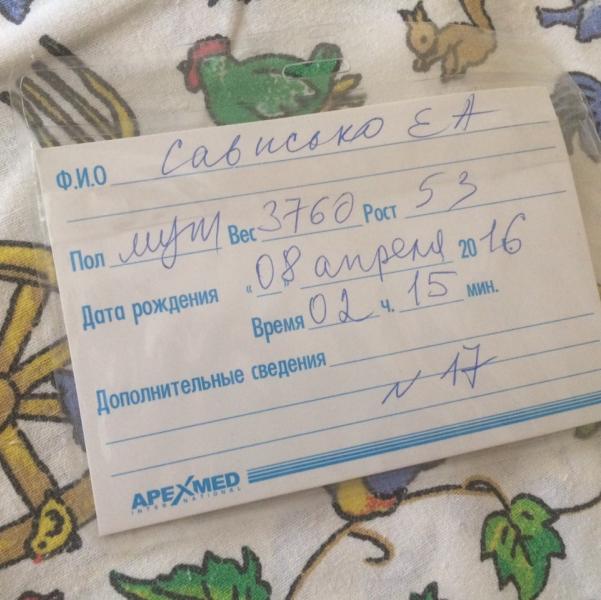 Ф.И.О Сависько ЕА
Пол муж Вес 3760 Рост 53
Дата рождения "08" апреля 2016
Время 02 ч. 15 мин.
Дополнительные сведения
N 17
APEXMED
INTERNATIONAL